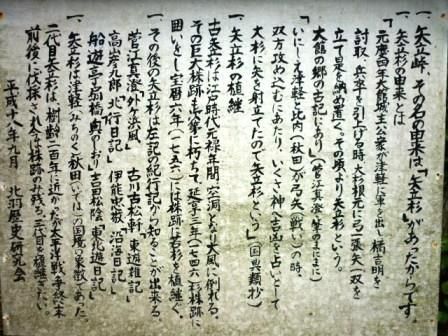 一、矢立峠、その名の由来は「矢立杉」があったからです。
一、矢立杉の由来とは
「元慶四年大館城主公家が津軽に軍を出し橘吉明を
討取、兵卒を引上げる時、大杉根元に弓一張矢一双を
立て是を納め置く。その頃より矢立杉という。
大館の郷の古記にあり」(菅江真澄筆のまにまに)
いにしえ津軽と比内(秋田)が弓矢(戦い)の時、
双方攻め込むにあたり、いくさ神へ吉凶を占いとして
大杉に矢を射立てたので矢立杉という」(国典類抄)
一、矢立杉の植継
古矢立杉は江戸時代元禄年間、空洞となり大風に倒れる。
その巨大株跡も次第に朽ちて延享三年(一七四六)杉株跡に
囲いをし宝暦六年(一七五六)には株跡に若杉を植継ぐ。
一、その後の矢立杉は左記の紀行記から知ることが出来る。
菅江真澄「外が浜風」 古川古松軒「東遊雑記」
高山彦九郎「北行日記」 伊能忠敬「沿海日記」
船遊亭扇橋「奥のしおり」 吉田松陰「東北遊日記」
一、矢立杉は津軽(みちのく)秋田(いでは)の国境の象徴であった。
二代目矢立杉は、樹齢二百年に近かったが太平洋戦争終一本
前後に伐採され今は株跡のみ残る。三代目を植継ぎたい。
平成十八年九月 北羽歴史研究会